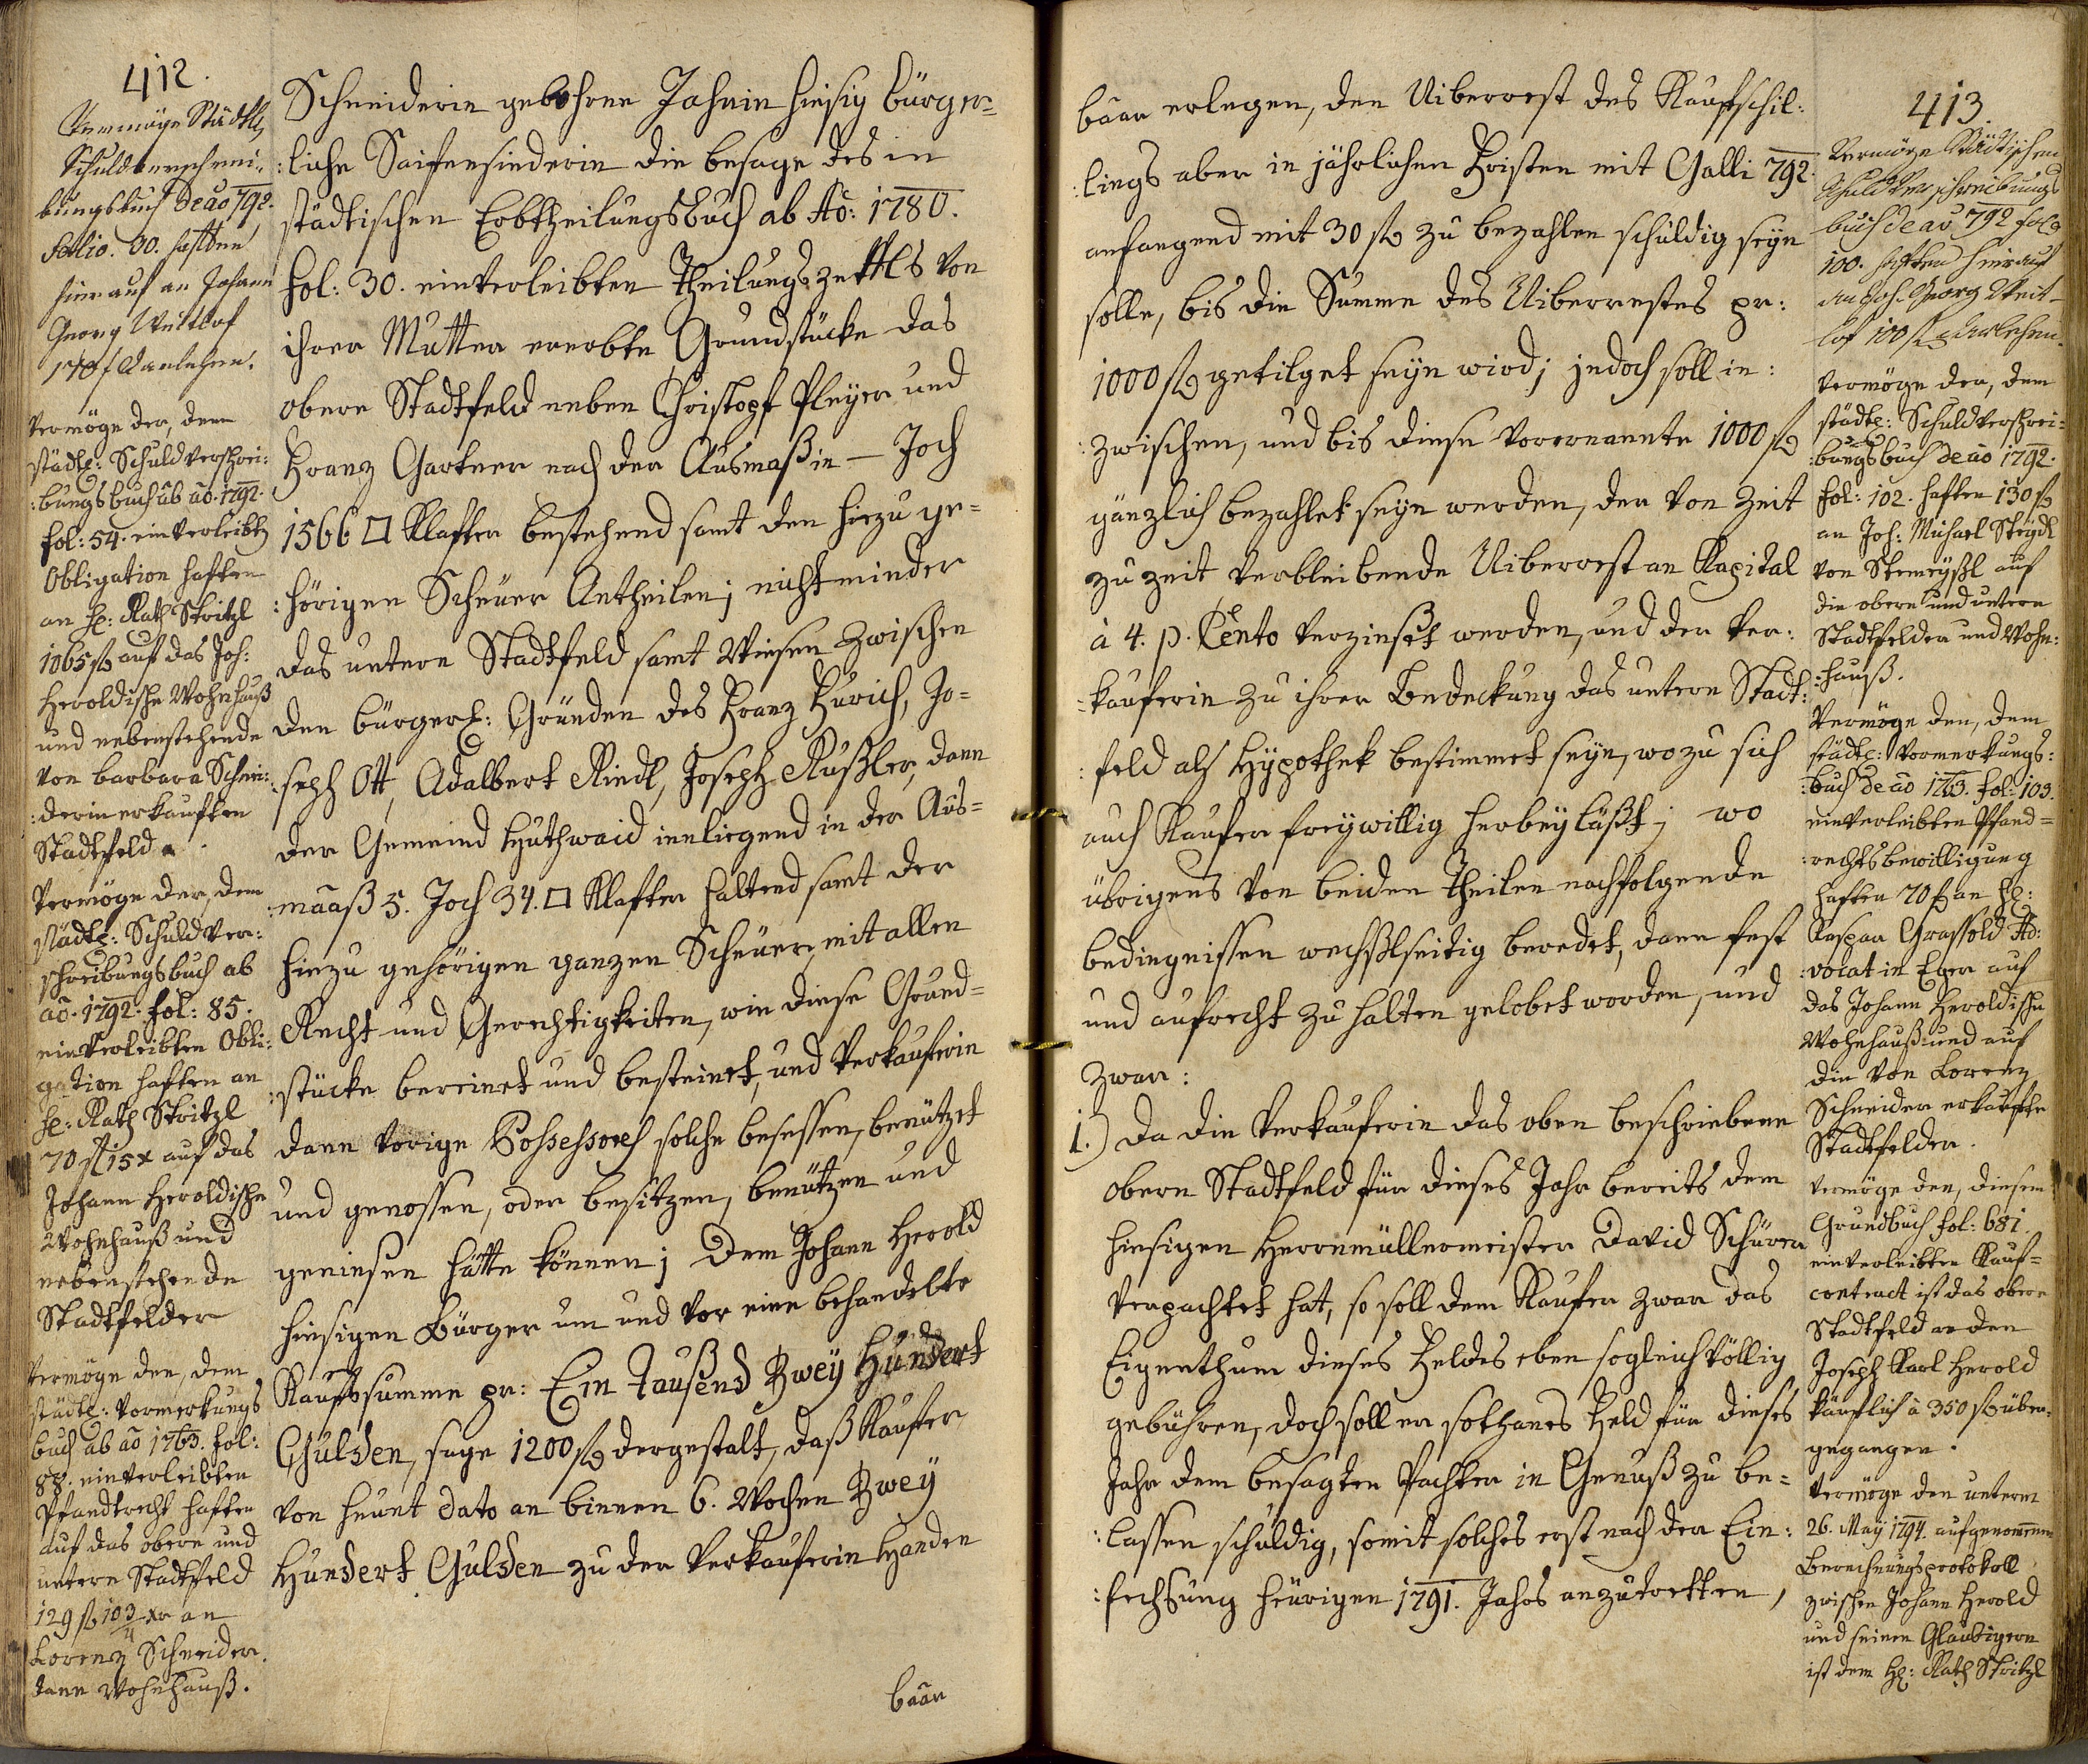 412.
Vermöge Städtl:
Schuldverschrei:
bungsbuch de ao 792.
folio. 30. haften
hierauf an Johann
Georg Weitlof
170 f Darlehen.
Vermöge der, dem
städtl: Schuldverschrei:
:bungsbuch ab ao. 1792.
fol: 54. einverleibten
Obligation haften
an H: Rath Stritzl
1065 fl auf das Joh:
Heroldische Wohnhauß
und nebenstehende
von Barbara Schnei:
:derin erkauften
Stadtfelder.
Vermöge der, dem
städtl: Schuldver:
schreibungsbuch ab
ao. 1792. fol: 85.
einverleibten Obli:
gation haften an
H: Rath Stritzl
70 fl 15 x auf das
Johann Heroldische
Wohnhauß und
nebenstehende
Stadtfelder
Vermöge der, dem
städtl: Vormerkungs
buch ab ao 1763. fol:
88. einverleibten
Pfandtrecht haften
auf das obere und
untere Stadtfeld
129 fl 10 3/4 xr an
Lorenz Schneider.
dann Wohnhauß.
Schneiderin gebohrne Jahnin hiesig bürger=
:liche Saifensiederin die besage des in
städtischen Erbtheilungsbuch ab Ao: 1780.
fol: 30. einverleibten Theilungszettls von
ihrer Mutter ererbte Grundstücke das
obere Stadtfeld neben Christoph Pleyer und
Franz Gartner nach der Ausmaß in — Joch
1566 □ Klafter bestehend samt den hiezu ge=
:hörigen Scheuer Antheilen; nicht minder
das untere Stadtfeld samt Wiesen zwischen
den bürgerl: Gründen des Franz Zürich, Jo=
:seph Ott, Adalbert Riedl, Joseph Rußler, dann
der Gemeind Huthwaid innliegend in der Aus=
:maaß 5. Joch 34. □ Klafter haltend samt der
hiezu gehörigen ganzen Scheuer, mit allen
Recht und Gerechtigkeiten, wie diese Grund=
:stücke bereinet und besteinet, und Verkauferin
dann vorige Possessores solche besessen, benützet
und genossen, oder besitzen, benützen und
geniesen hätte können; dem Johann Herold
hiesigen Bürger um und vor eine behandelte
Kaufssumme pr: Ein Taußend Zwey Hundert
Gulden, sage 1200 fl dergestalt, daß Kaufer
von heunt dato an binnen 6. Wochen Zwey
Hundert Gulden zu der Verkauferin Handen
baar
baar erlegen, den Uiberrest des Kaufschil:
:lings aber in jährlichen Fristen mit Galli 792.
anfangend mit 30 fl zu bezahlen schuldig seyn
solle, bis die Summe des Uiberrestes pr:
1000 fl getilget seyn wird; jedoch soll in:
:zwischen, und bis diese vorernannte 1000 fl
gänzlich bezahlet seyn werden, der von Zeit
zu Zeit verbleibende Uiberrest an Kapital
à 4. p. Cento verzinset werden, und der Ver:
:kauferin zu ihrer Bedeckung das untere Stadt:
:feld als Hypothek bestimmet seyn, wozu sich
auch Kaufer freywillig herbeyläßt; wo
übrigens von beiden Theilen nachfolgende
Bedingnissen wechßlseitig beredet, dann fest
und aufrecht zu halten gelobet worden, und
zwar:
1.) Da die Verkauferin das oben beschriebene
obere Stadtfeld für dieses Jahr bereits dem
hiesigen Herrnmüllermeister David Schürer
verpachtet hat, so soll dem Kaufer zwar das
Eigenthum dieses Feldes eben sogleich völlig
gebühren, doch soll er sothanes Feld für dieses
Jahr dem besagten Pachter in Genuß zu be=
:lassen schuldig, somit solches erst nach der Ein:
:fechsung heurigen 1791. Jahrs anzutretten,
413.
Vermöge Städtischen
Schuldverschreibungs
buch de ao 792 fol.
100. haften hierauf
an Joh. Georg Weit-
lof 100 fl Darlehen.
Vermöge der, dem
städtl: Schuldverschrei:
:bungsbuch de ao 1792.
fol: 102. haften 130 fl
an Joh: Michael Steydl
von auf
die obere und untere
Stadtfelder und Wohn:
:hauß.
Vermöge der, dem
städtl: Vormerkungs:
:buch de ao 1763. fol: 103.
einverleibten Pfand=
:rechtsbewilligung
haften 70 f an H:
Kaspar Grassold Ad:
:vocat in Eger auf
das Johann Heroldische
Wohnhauß und auf
die von Lorenz
Schneider erkaufte
Stadtfelder.
Vermöge der, diesem
Grundbuch fol: 681.
einverleibten Kauf=
contract ist das obere
Stadtfeld an den
Joseph Karl Herold
käuflich à 350 fl über.
gegangen.
Vermöge den unterm
26. May 1794. aufgenommen
Berechnungsprotokoll
zwischen Johann Herold
und seinen Glaubigern
ist dem H: Rath Stritzl